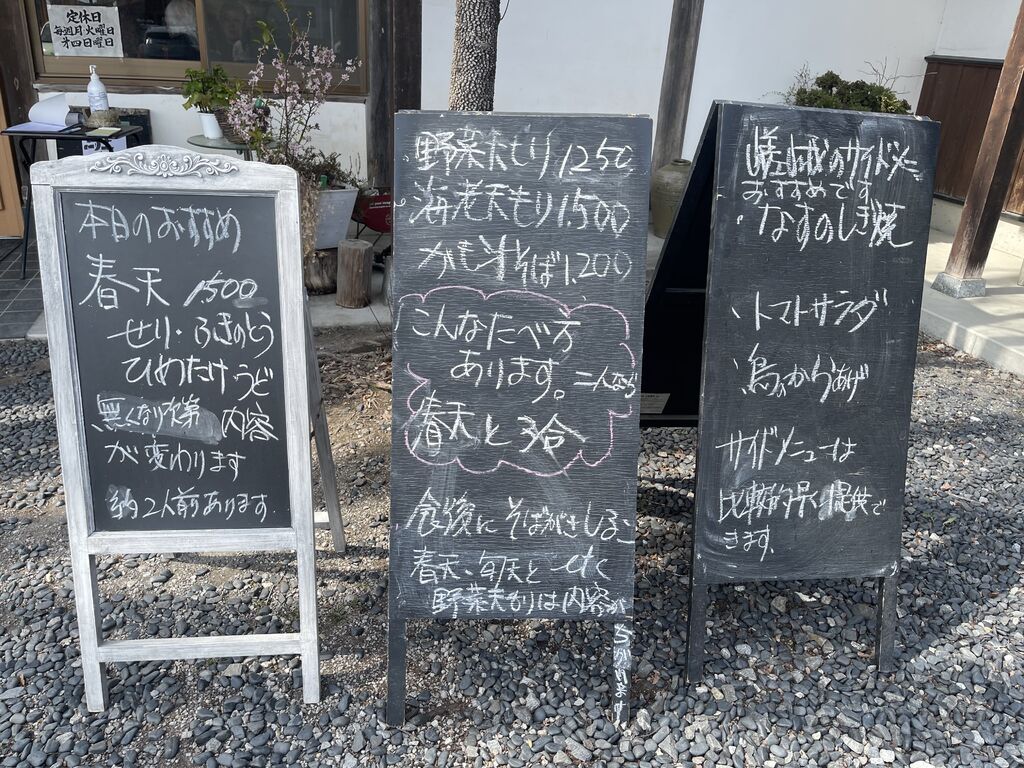 定休日
毎週月火曜日
第四日曜日
本日のおすすめ
春天 1500
せり・ふきのとう
ひめたけ・うど
無くなり次第 内容
が変わります
約2人前あります
野菜天もり 1250
海老天もり 1,500
かも汁そば 1,200
こんなたべ方
あります。二人なら
春天と3合
食後にそばがきしるこ
春天、旬天と
野菜天もりは内容が
ちがいます
のサイドメニュー
おすすめです
なすのしぎ焼
トマトサラダ
鳥のからあげ
サイドメニューは
比較的早く提供で
きます。